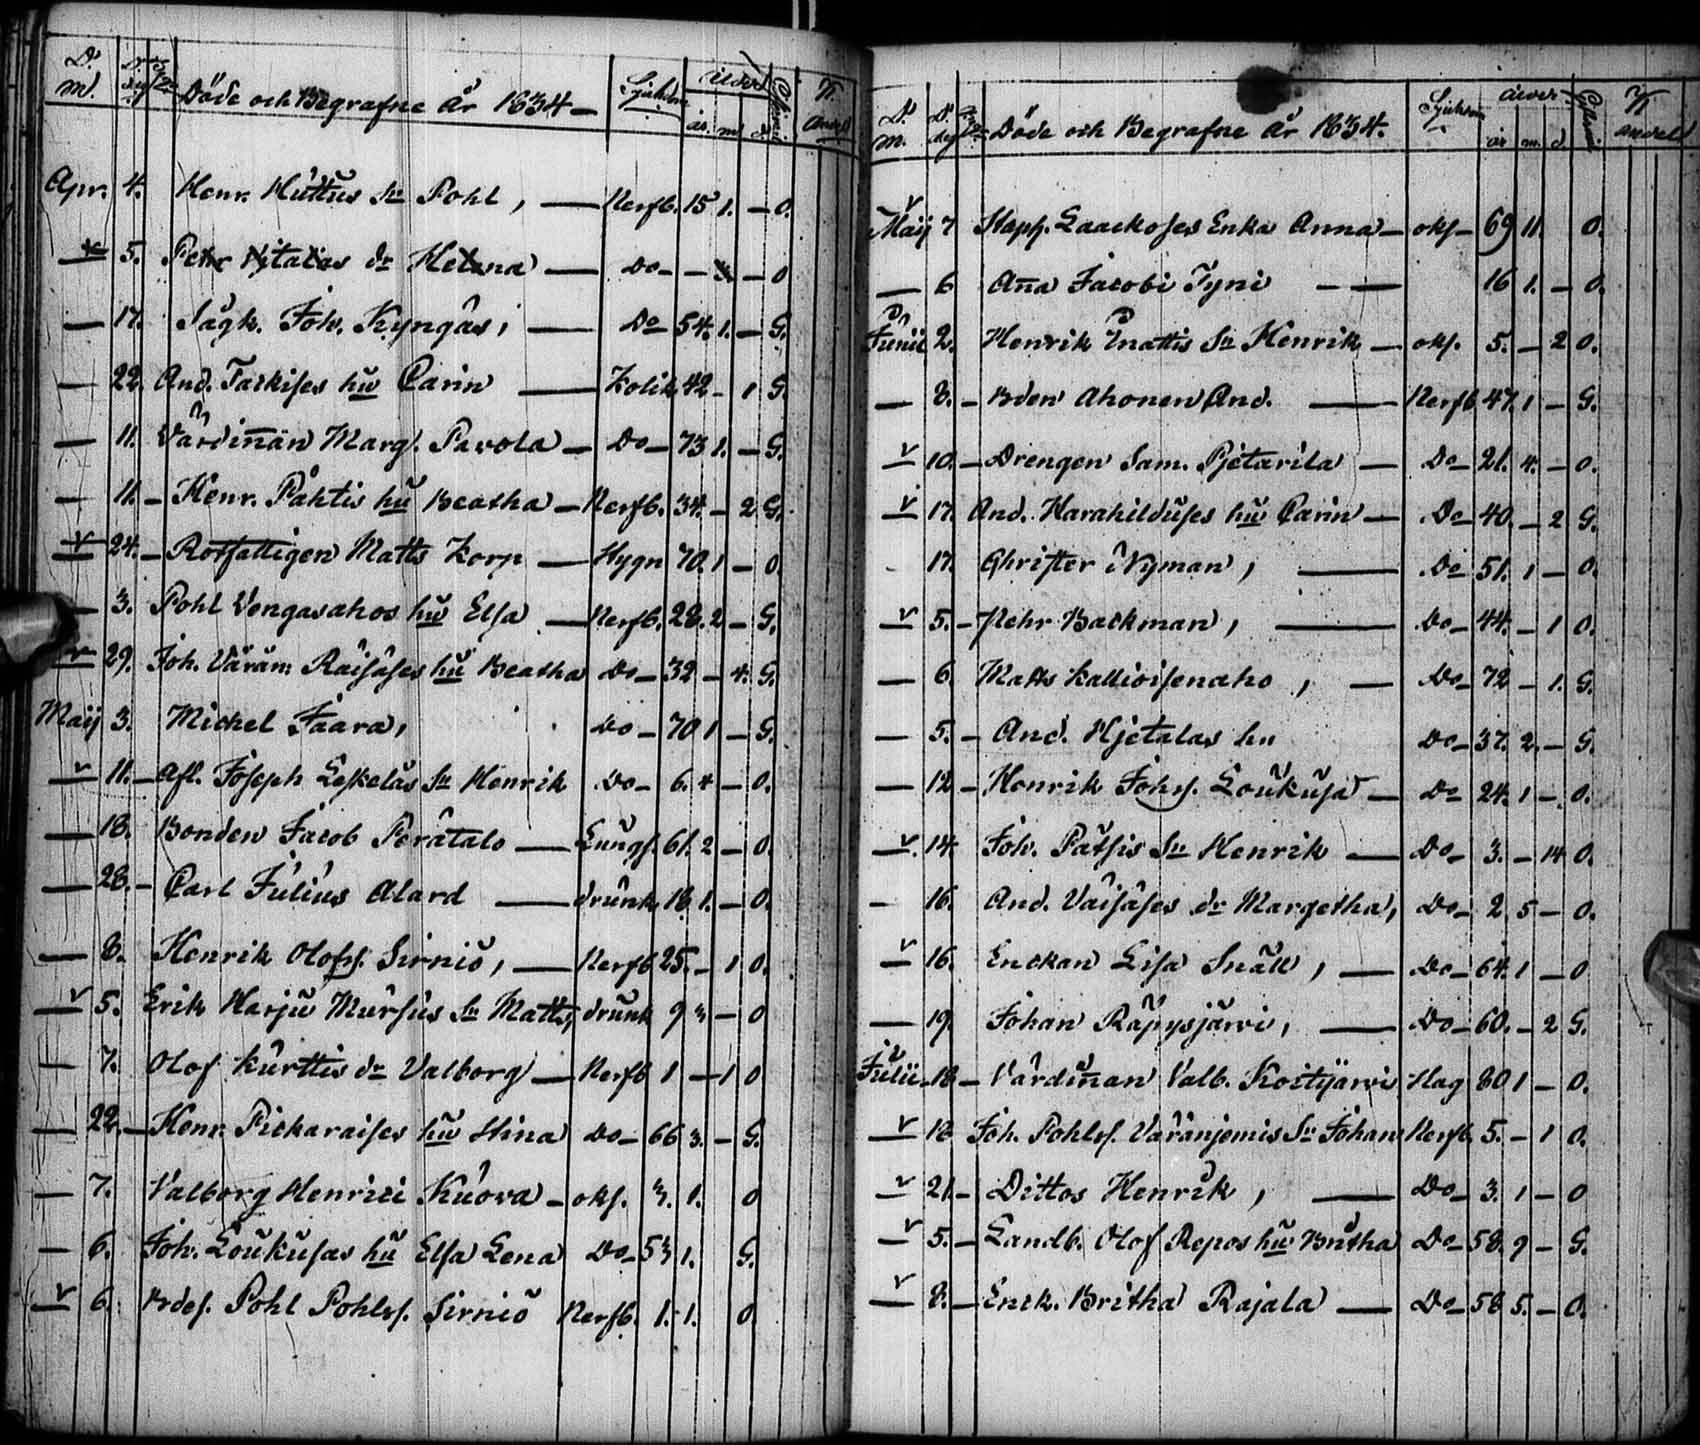 D. D. Döde och Begrafne År 1834 - Sjukdom ålder
m. dag år. m. d.
Apr. 4. Henr. Huttus Sn Pohl, — Nerfb. 15 1. - O.
— 5. Petr dr Helena — Do - - - O
— 17. Sågk. Joh. Kyngäs, — Do 54. 1. - G.
— 22. And. Tackises hu Carin — Kolik 42 - 1 G.
— 11. Värdinnan Marg. Pavola — Do - 73 1. - G.
— 11. - Henr. Påhtis hu Beatha - Nerfb. 34. - 2 G.
— 24. - Rotfattigen Matts Korp — Hygn 70. 1 - O.
— 3. Pohl Vengasahos hu Elsa — Nerfb. 28. 2 - G.
— 29. Joh. Räisäses hu Beatha Do - 32 - 4. G.
Maij 3. Michel Jaara, Do - 70 1 - G.
— 11. - Afl. Joseph Leskeläs Sn Henrik Do - 6. 4 - O.
— 18. Bonden Jacob Perätalo — Lungs. 61. 2 - O.
— 28. - Carl Julius Alard — drunk. 18. 1. - O.
— 8. Henrik Olofss. Sirniö, — Nerfb 25. - 1 O.
— 5. Erik Harju Mursus Sn Matts, drunk 9 3 - O
— 7. Olof Kurttis dr Valborg — Nerfb 1 - 1 O
— 22. - Henr. Pickaraises hu Stina Do - 66 3. - G.
— 7. Valborg Henrici Kuova - oks. 3. 1. O
— 6. Joh. Loukusas hu Elsa Lena Do - 53 1. G.
— 6. Pohl Pohlss. Sirniö Nerfb. 1. 1. O
D. D. Döde och Begrafne År 1834. Sjukdom ålder
m. dag år m. d
Maij 7 Enka Anna - oks - 69 11. O.
— 6 Ana Jacobi Tyni — 16 1. - O.
Junii 2. Henrik Inattis Sn Henrik — oks. 5. - 2 O.
— 8. - Bden Ahonen And. — Nerfb 47. 1 - G.
— 10. - Drengen Sam. Pjetarila — Do - 21. 4. - O.
— 17. And. Harahilduses hu Carin — Do - 40. - 2 G.
17. Christer Nyman, — Do - 51. 1 - O.
— 5. - Pehr Backman, — Do - 44. - 1 O.
— 6. Matts Kallioisenaho, — Do - 72 - 1. G.
— 5. - And. Hjetalas hu Do - 37. 2. - G.
— 12 - Henrik Johss. Loukusa — Do 24. 1 - O.
— 14. Joh. Pätsis Sn Henrik — Do - 3. - 14 O.
— 16. And. Väisäses dr Margetha, Do - 2. 5 - O.
— 16. Enckan Lisa Snäll, — Do - 64. 1 - O
— 19. Johan Räpysjärvi, — Do - 60. - 2 G.
Julii 18 - Värdinnan Valb. Kostijärvi Hag 80 1 - O.
— 18 Joh. Pohlss. Väränjemis Sn Johan Nerfb. 5. - 1 O.
— 21 - Dittos Henrik, — Do - 3. 1 - O
— 5. - Landb. Olof Repos hu Britha Do - 58. 9 - G.
— 8. - Enck. Britha Rajala — Do - 58 5. - O.